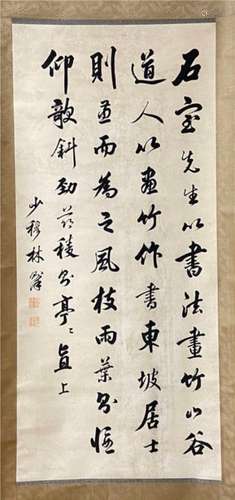 石室先生以書法畫竹山谷
道人以畫竹作書東坡居士
則並而為之風枝雨葉則偃
仰敧斜勁節稜則亭〻直上
少穆林